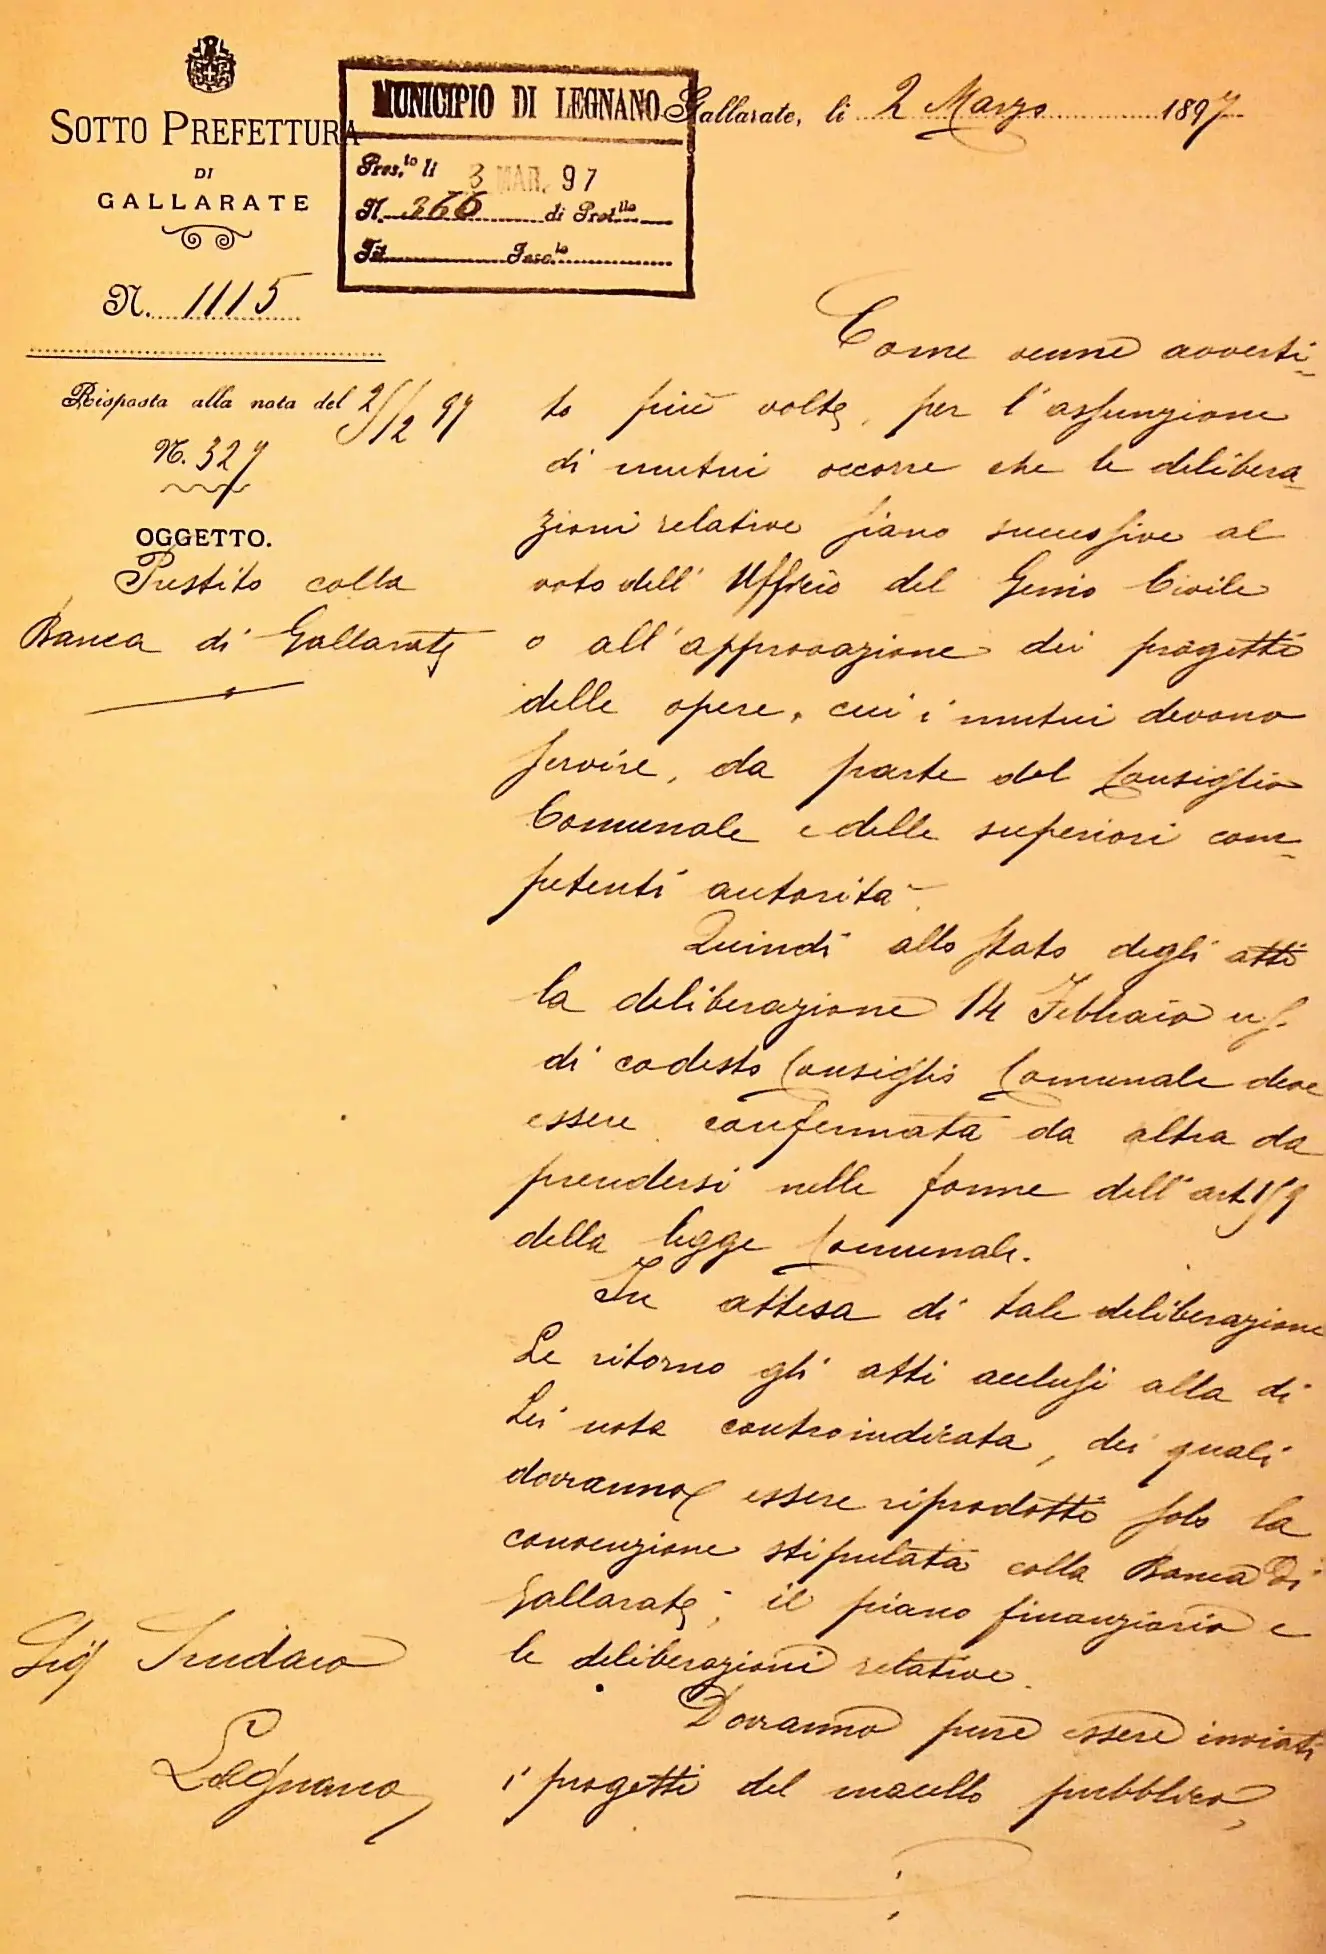 SOTTO PREFETTURA
DI
GALLARATE
N. 1115
MUNICIPIO DI LEGNANO
Pres.to li 3 MAR. 97
N. 366 di Prot.llo
Tit. Fasc.lo
Gallarate, li 2 Marzo 1897
Risposta alla nota del 2/2 97
N. 327
OGGETTO.
Prestito colla
Banca di Gallarate
Come venne avverti-
to più volte, per l'assunzione
di mutui occorre che le delibera-
zioni relative siano successive al
voto dell' Ufficio del Genio Civile
o all'approvazione dei progetti
delle opere, cui i mutui devono
servire, da parte del Consiglio
Comunale e delle superiori com-
petenti autorità.
Quindi allo stato degli atti
la deliberazione 14 Febbraio u.s.
di codesto Consiglio Comunale deve
essere confermata da altra da
prendersi nelle forme dell'art 159
della legge Comunale.
In attesa di tale deliberazione
Le ritorno gli atti acclusi alla di
Lei nota controindicata, dei quali
dovranno essere riprodotti solo la
convenzione stipulata colla Banca di
Gallarate, il piano finanziario e
le deliberazioni relative.
Dovranno pure essere inviati
i progetti del macello pubblico,
Sig Sindaco
Legnano